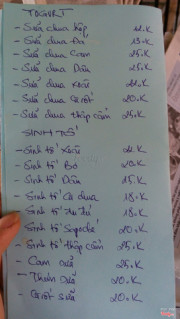 YAOURT
- Sữa chua hộp 12.K
- Sữa chua Đá 15.K
- Sữa chua Cam 25.K
- Sữa chua Dâu 25.K
- Sữa chua Xoài
- Sữa chua Cà rốt 20.K
- Sữa chua thập cẩm 25.K
SINH TỐ
- Sinh tố Xoài
- Sinh tố Bơ 20.K
- Sinh tố Dâu 15.K
- Sinh tố Cà chua 18.K
- Sinh tố Đu Đủ 18.K
- Sinh tố Sapôchê 20.K
- Sinh tố thập cẩm 25.K
- Cam 25.K
- Thơm 20.K
- Cà rốt sữa 20.K